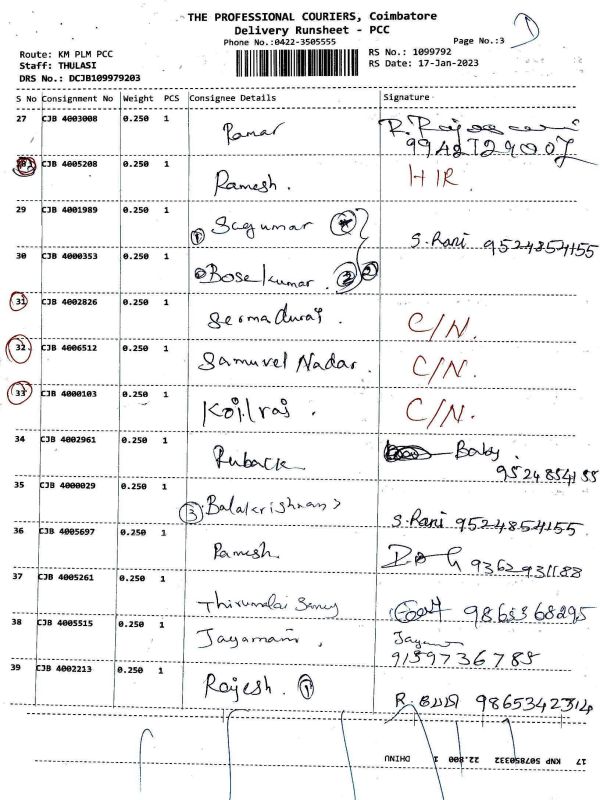 THE PROFESSIONAL COURIERS, Coimbatore
Delivery Runsheet - PCC
Phone No.:0422-3505555
Page No.:3
Route: KM PLM PCC
RS No.: 1099792
Staff: THULASI
RS Date: 17-Jan-2023
DRS No.: DCJB109979203
S No Consignment No Weight PCS Consignee Details Signature
27 CJB 4003008 0.250 1 Ramar
9942729007
28 CJB 4005208 0.250 1 Ramesh. HIR
29 CJB 4001989 0.250 1 ① Sugumar
S. Rani 9524854155
30 CJB 4000353 0.250 1 Bose kumar. ② ②
31 CJB 4002826 0.250 1 Sermadurai. C/N.
32 CJB 4006512 0.250 1 Samuvel Nadar. C/N.
33 CJB 4000103 0.250 1 Koilraj. C/N.
34 CJB 4002961 0.250 1 Ruback Baby
9524854155
35 CJB 4000029 0.250 1 ③ Balakrishnan
S. Rani 9524854155
36 CJB 4005697 0.250 1 Ramesh. 9362931188
37 CJB 4005261 0.250 1 Thirumalai Samy 9865368295
38 CJB 4005515 0.250 1 Jayamani.
9159736785
39 CJB 4002213 0.250 1 Rajesh. ①
R. 9865342314
17 KNP 507850332 22.800 1 DHINU